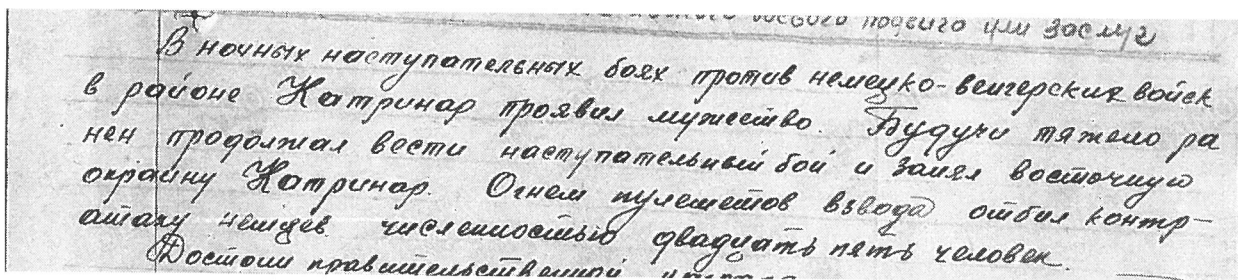 боевого подвига или заслуг
В ночных наступательных боях против немецко-венгерских войск
в районе Катринар проявил мужество. Будучи тяжело ра
нен продолжал вести наступательный бой и занял восточную
окраину Катринар. Огнем пулеметов взвода отбил контр-
атаку немцев численностью двадцать пять человек.
Достоин правительственной